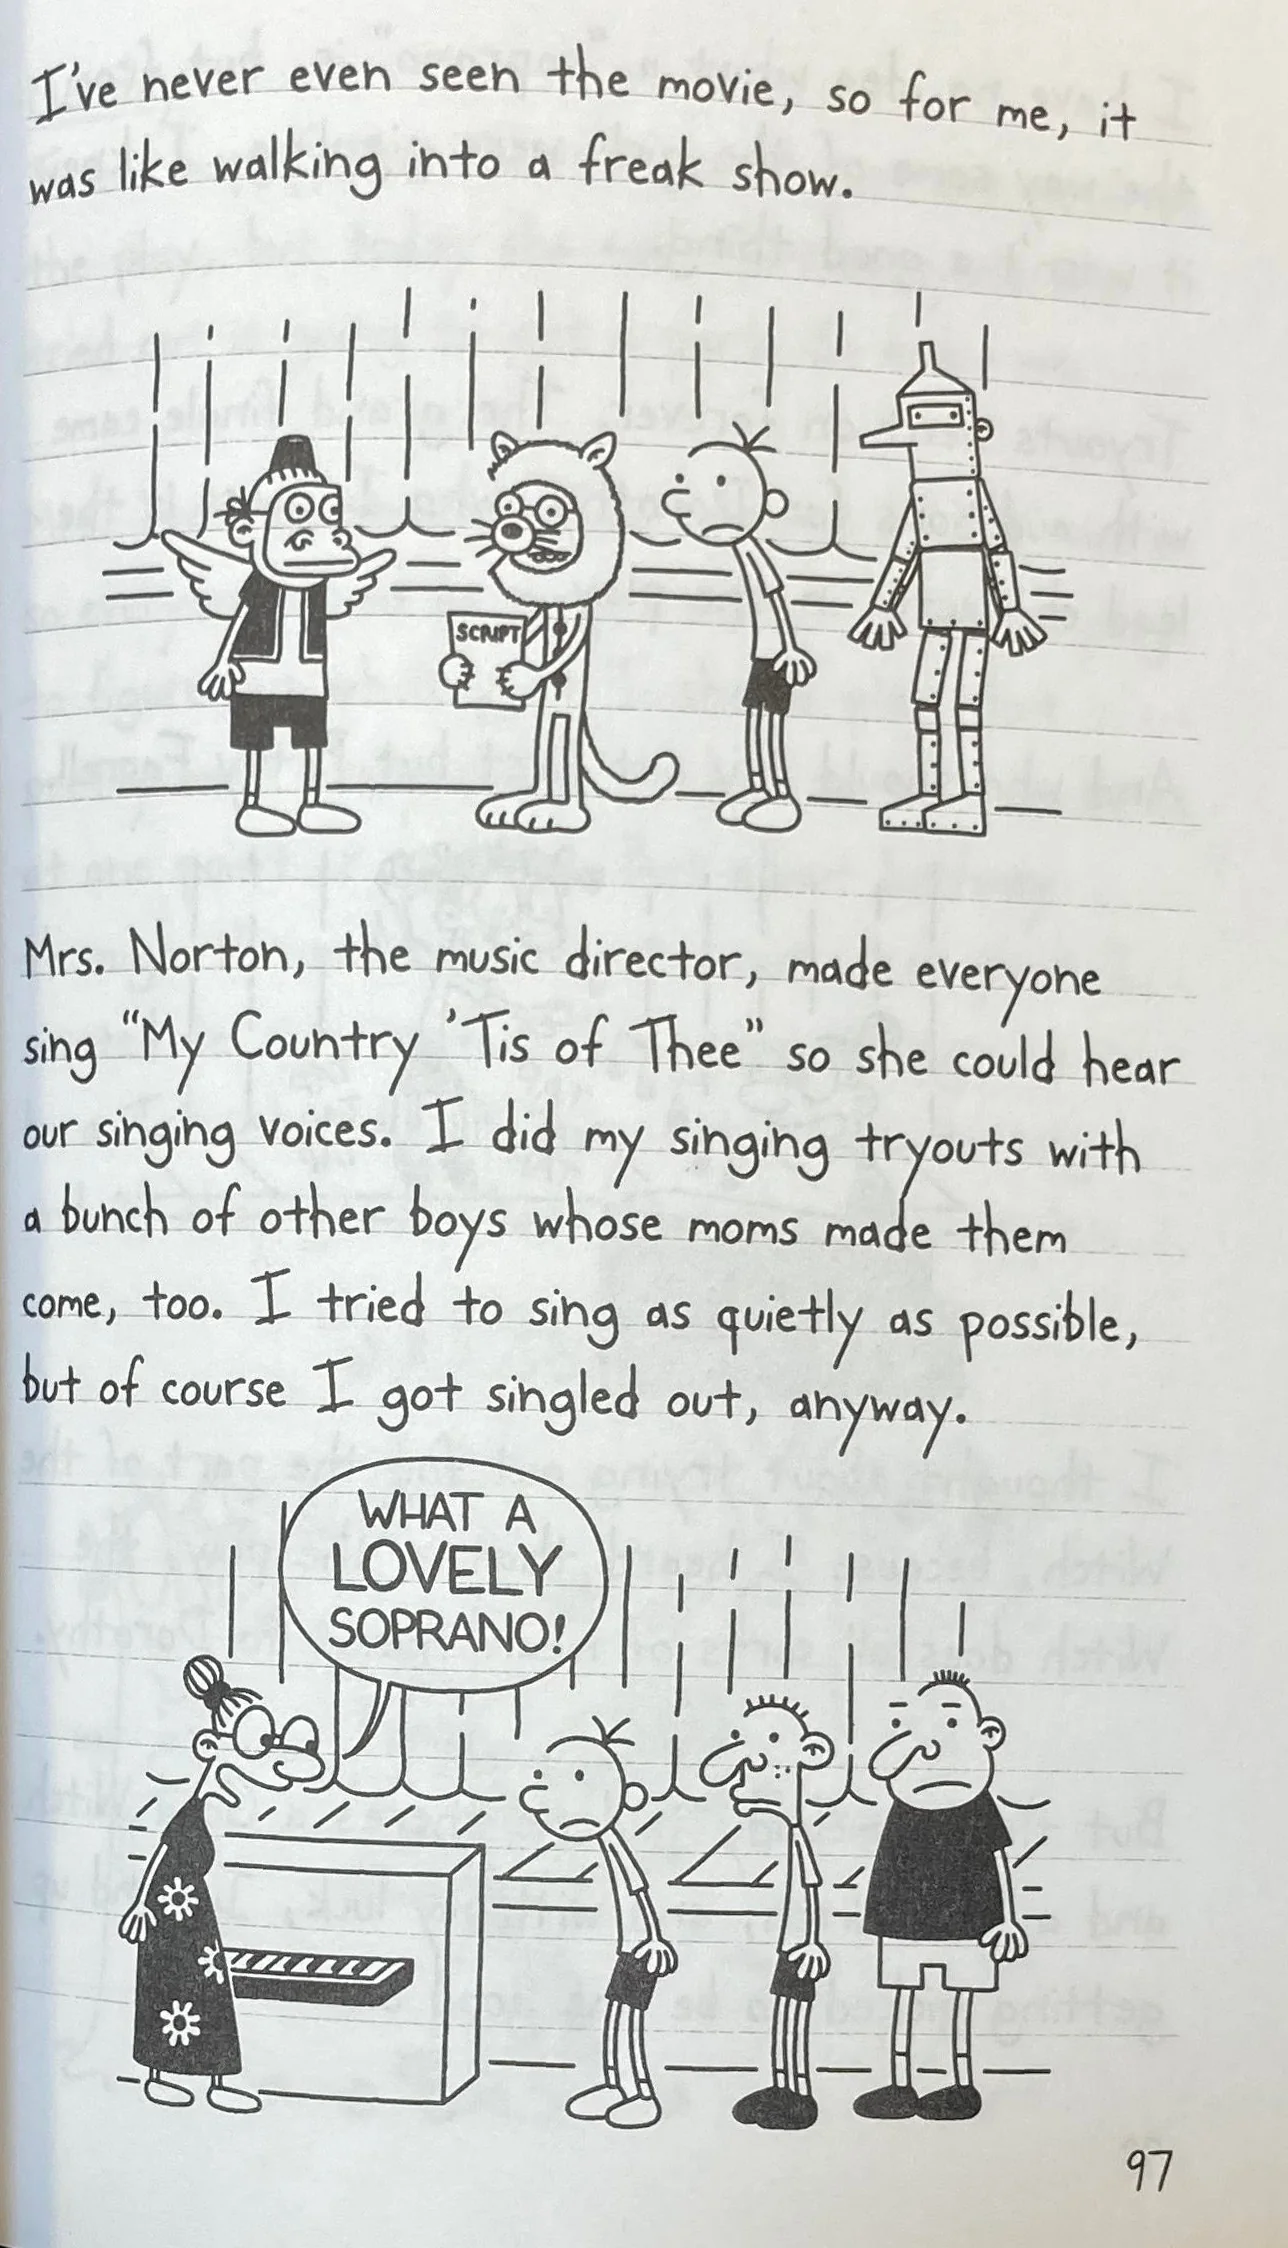 I've never even seen the movie, so for me, it
was like walking into a freak show.
SCRIPT
Mrs. Norton, the music director, made everyone
sing "My Country 'Tis of Thee" so she could hear
our singing voices. I did my singing tryouts with
a bunch of other boys whose moms made them
come, too. I tried to sing as quietly as possible,
but of course I got singled out, anyway.
WHAT A
LOVELY
SOPRANO!
97